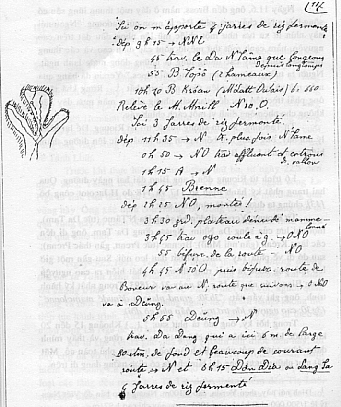 (14
Ici on m'apporte 4 jarres de riz fermenté
Dép 9h15 → NNE
45 trav. le Da N'Tame que longeons
depuis longtemps
55 B. Topô (2 hameaux)
10h20 B Kroan (M'latt Dalais)
Relevé le N. N10.O.
Ici 3 jarres de riz fermenté.
dép 11h35 → N. plus fois N'Tame
0h50 → NO trav affluent et
1h15 A → N
1h45 Bienne
Dép 2h25 NO, montée!
3h30 grd. plateau dénudé mamme-
lonné
3h45 trav ogo coule à g → ONO
55 bifur. de la route - NO
4h45 N10O puis bifur. route de
Bonneur va au N, route que suivons → ONO
va à Deŭng.
5h55 Deŭng → N
trav. Da Dong qui a ici 6m. de large
80 ctm. de fond et beaucoup de courant
route → N et 6h15 Dan Dia ou Lang Sa
4 jarres de riz fermenté